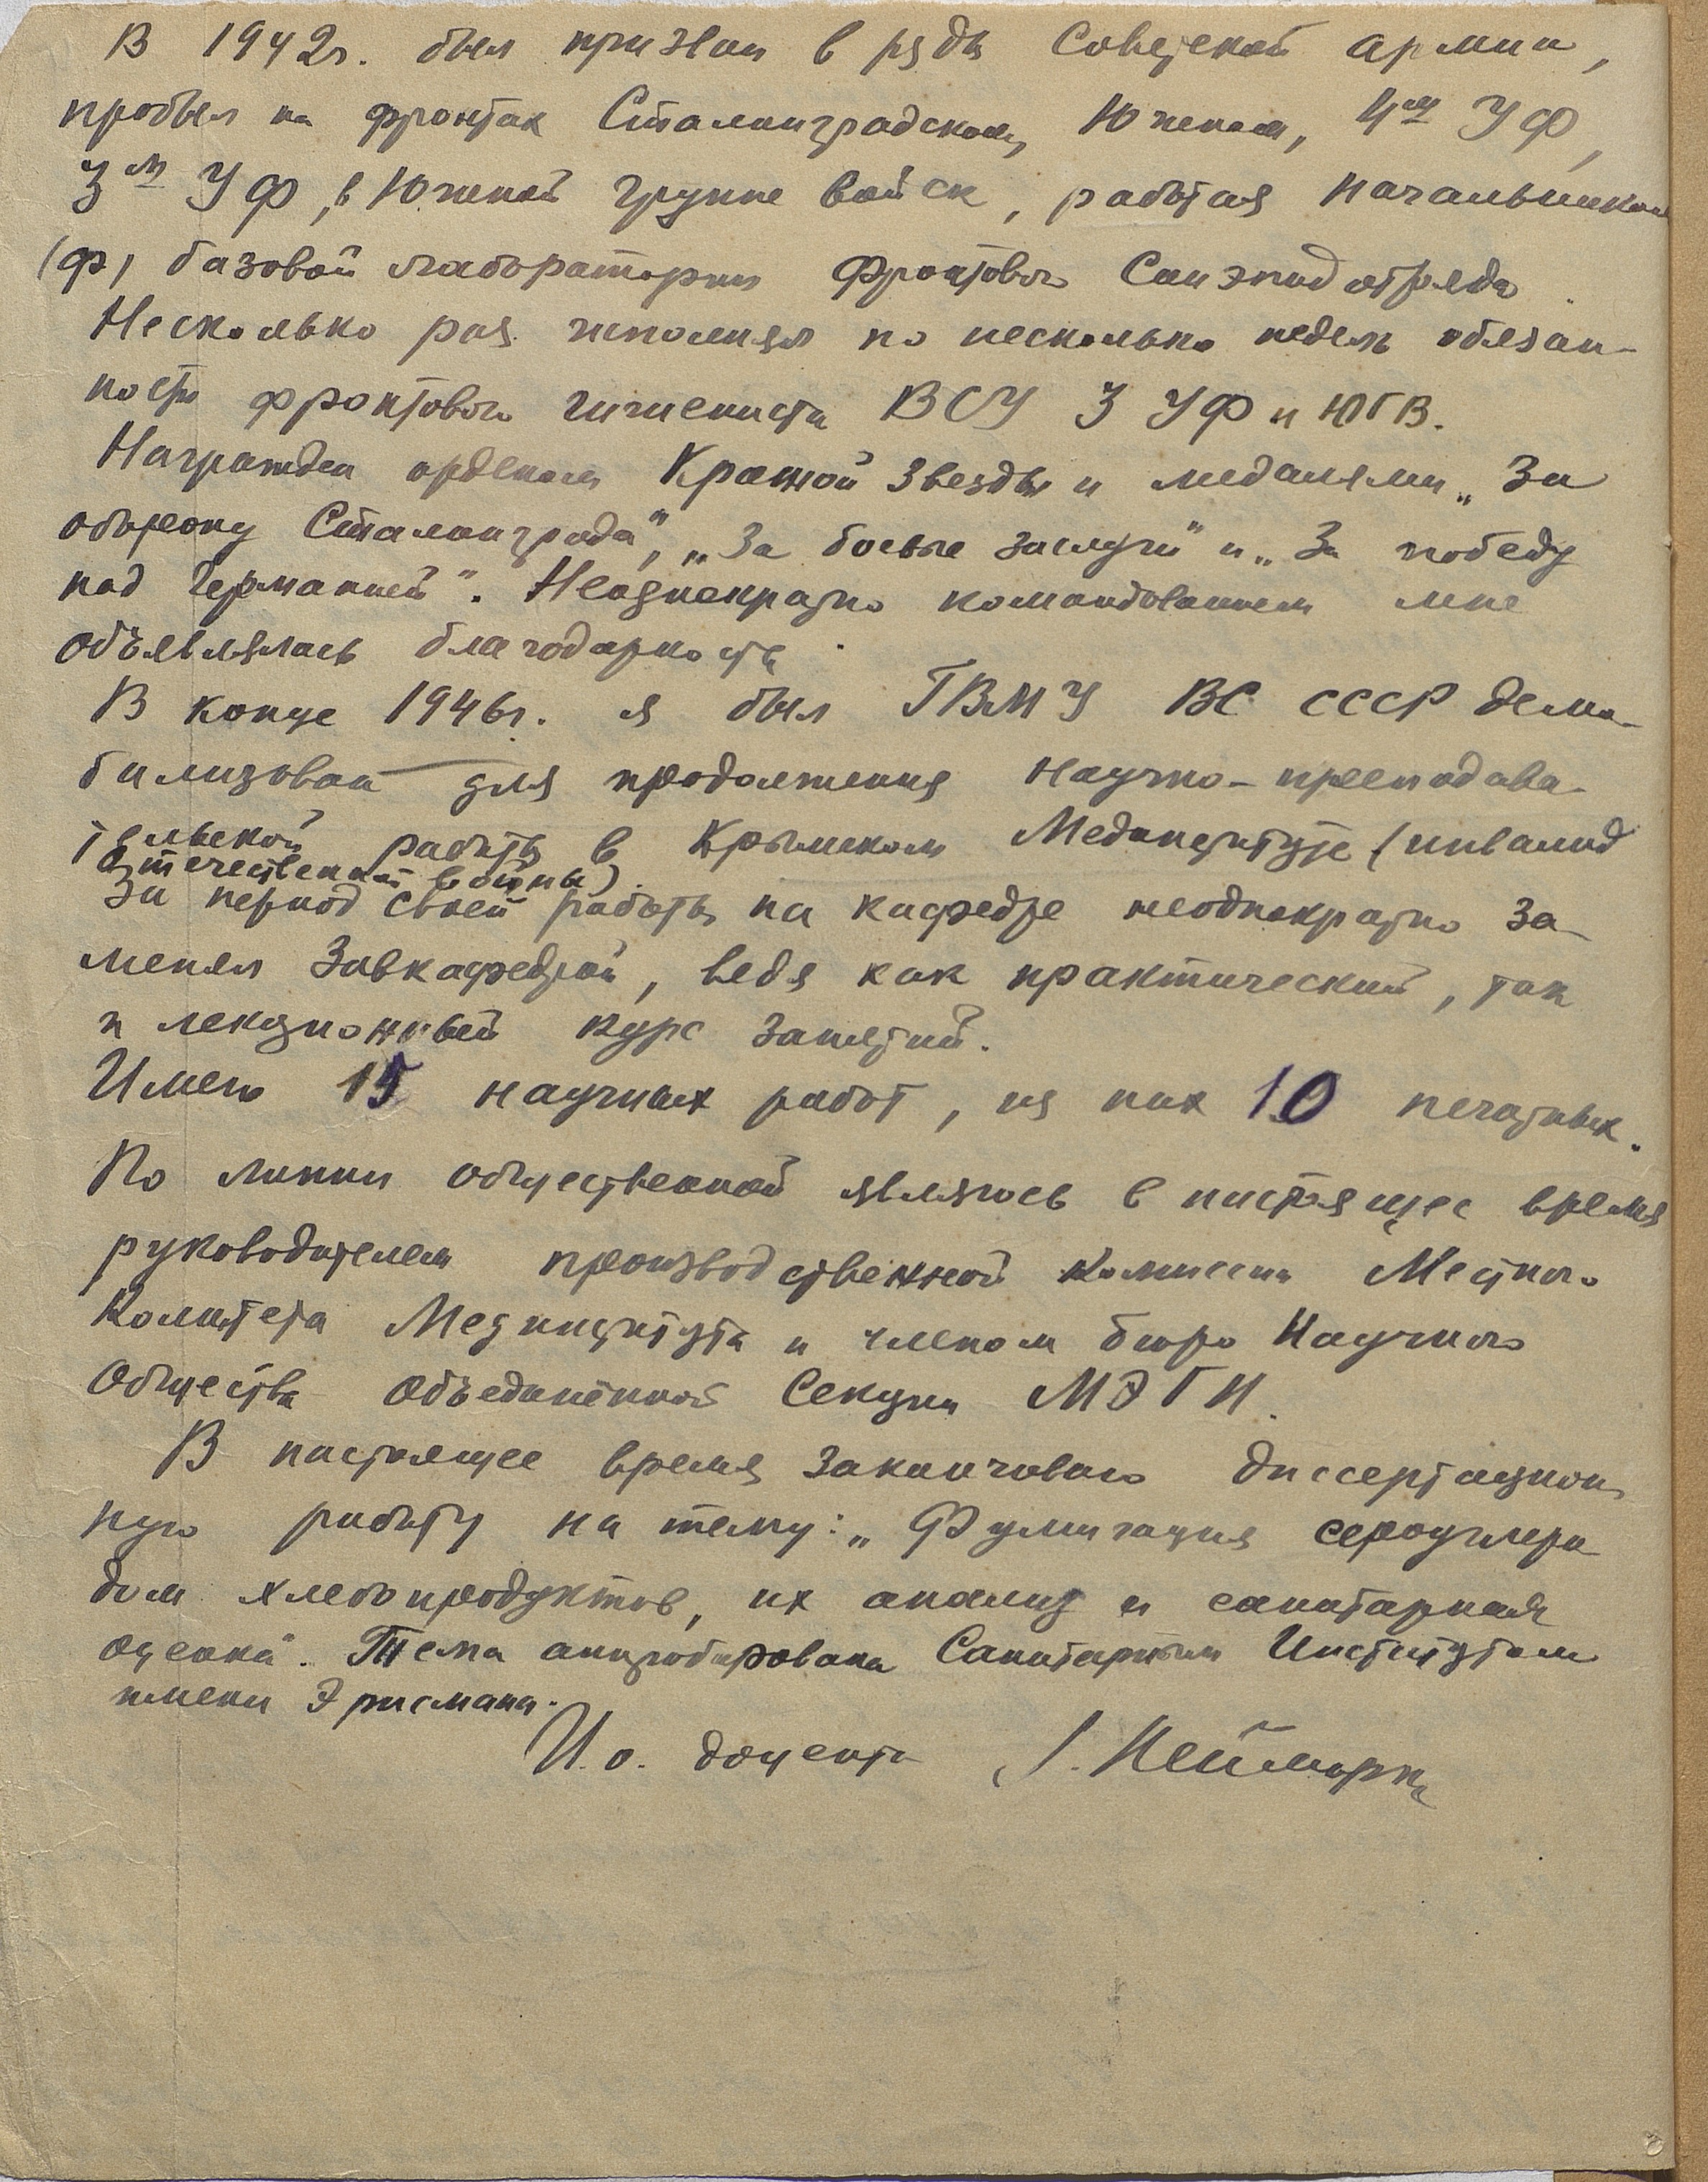 В 1942г. был призван в ряды Советской армии,
пробыл на фронтах Сталинградском, Южном, 4м УФ,
3м УФ, в Южной группе войск, работая начальником
(ф) базовой лаборатории фронтового Санэпидотряда.
Несколько раз исполнял по несколько недель обязан-
ности фронтового гигиениста ВСУ 3 УФ и ЮГВ.
Награжден орденом Красной Звезды и медалями „За
оборону Сталинграда“, „За боевые заслуги“ и „За победу
над Германией“. Неоднократно командованием мне
объявлялась благодарность.
В конце 1946г. я был ГВМУ ВС СССР демо-
билизован для продолжения научно-преподава-
тельской работы в Крымском Мединституте (инвалид
Отечественной войны).
За период своей работы на кафедре неоднократно за-
менял Завкафедрой, ведя как практический, так
и лекционный курс занятий.
Имею 15 научных работ, из них 10 печатных.
По линии общественной являюсь в настоящее время
руководителем производственной комиссии Местного
Комитета Мединститута и членом бюро Научного
Общества Объединённой Секции МЭГИ.
В настоящее время заканчиваю диссертацион-
ную работу на тему: „Фумигация сероуглеро
дом хлебопродуктов, их анализ и санитарная
оценка“. Тема апробирована Санитарным Институтом
имени Эрисмана.
И.о. доцента Неймарк